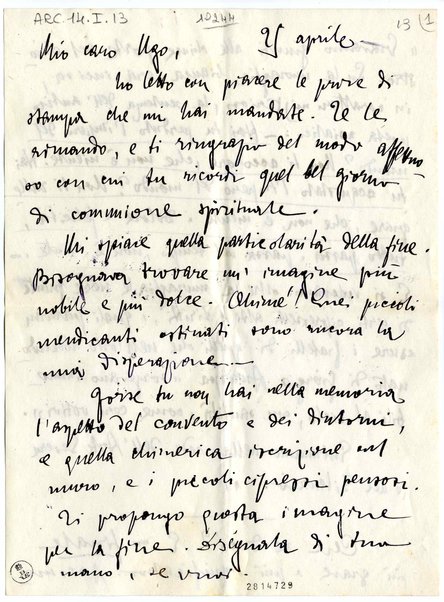 ARC.14.I.13 10244 13 1
25 aprile -
Mio caro Ugo,
ho letto con piacere le prove di
stampa che mi hai mandate. Te le
rimando, e ti ringrazio del modo affettuo-
so con cui tu ricordi quel bel giorno
di comunione spirituale.
Mi spiace quella particolarità della fine.
Bisognava trovare un' imagine più
nobile e più dolce. Ohimè! Quei piccoli
mendicanti ostinati sono ancora la
mia disperazione -
Forse tu non hai nella memoria
l'aspetto del convento e dei dintorni,
e quella chimerica iscrizione sul
muro, e i piccoli cipressi pensosi.
Ti propongo questa imagine
per la fine. Disegnala di tua
mano, se vuoi.
2814729